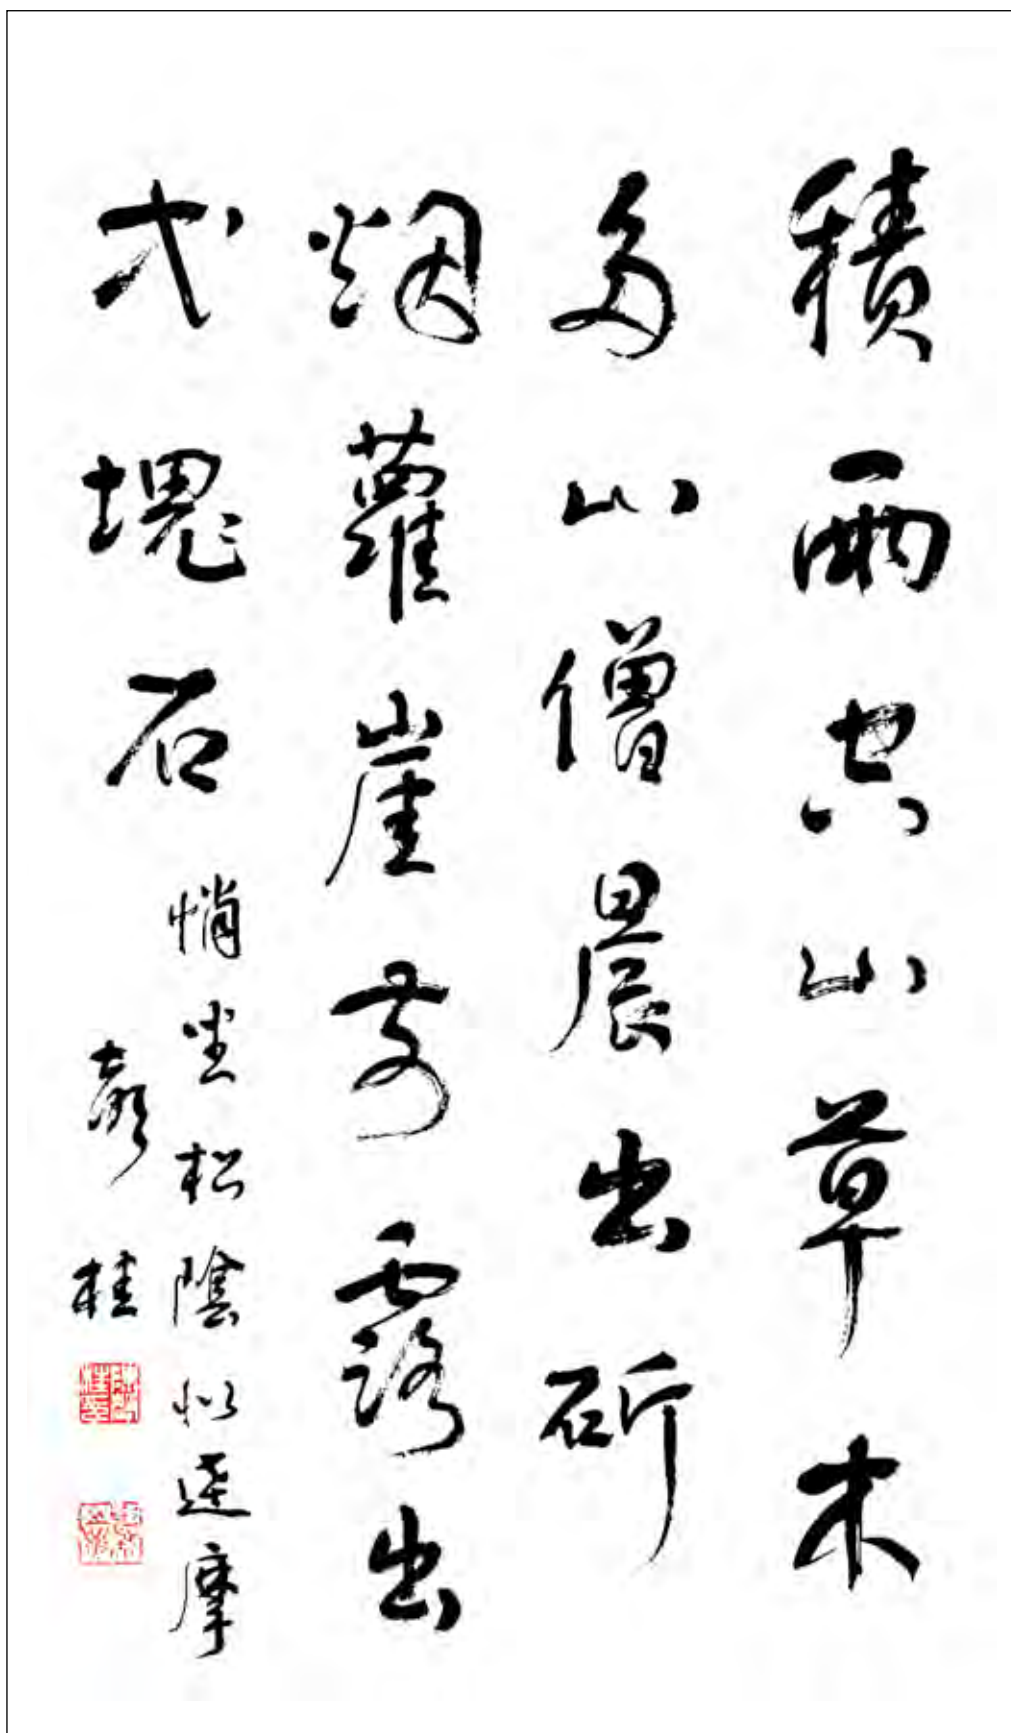 積雨空山草木
多山僧晨出斫
烟蘿崖前露出
弌塊石
悄坐松陰似達摩
桂